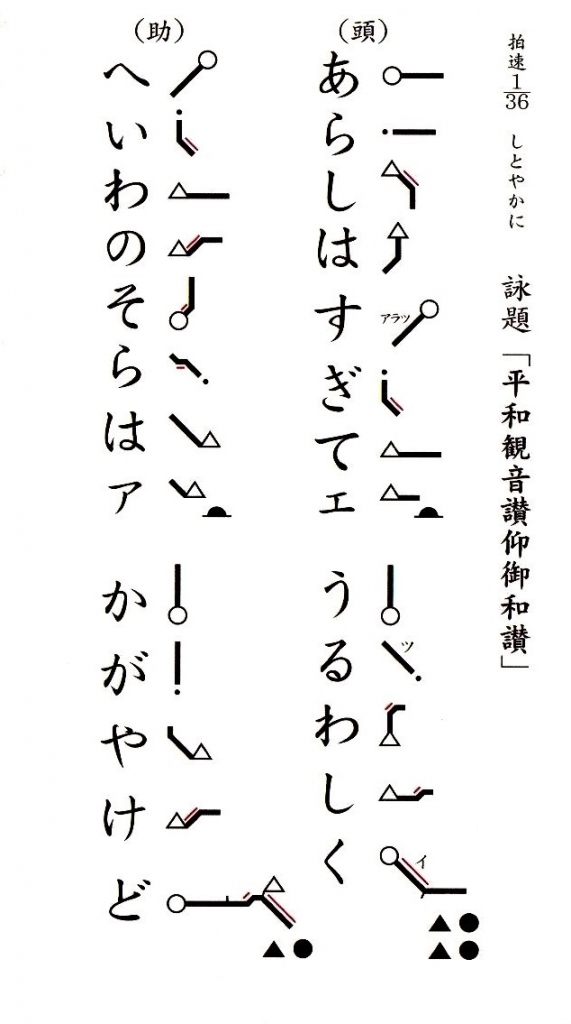 拍速1/36 しとやかに 詠題「平和観音讃仰御和讃」
(頭)
あらしはすぎてエ うるわしく
アラツ
ツ
イ
(助)
へいわのそらはア かがやけど